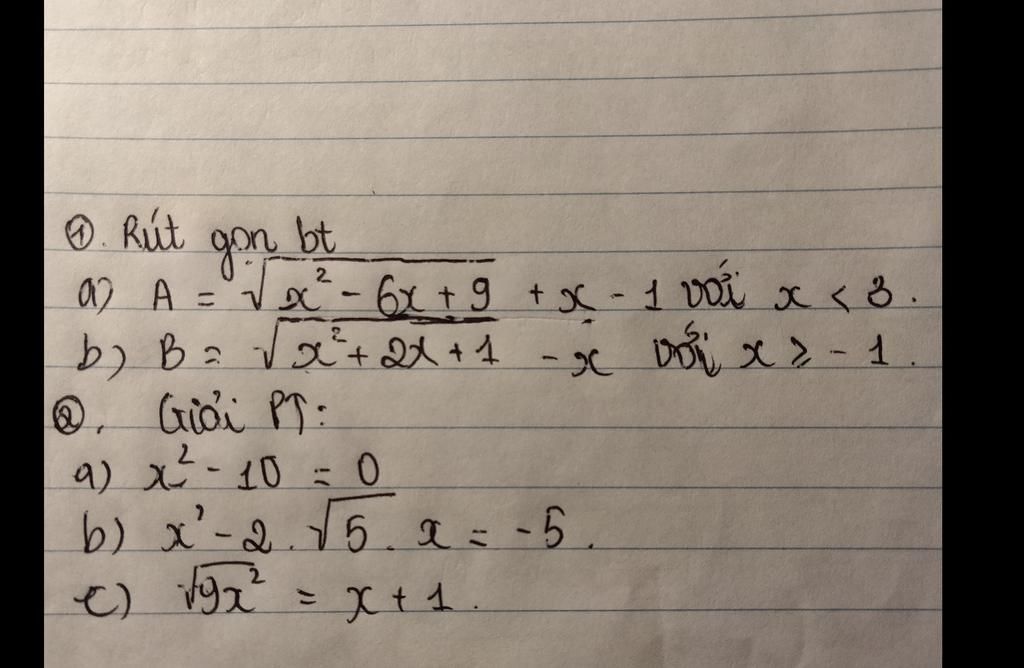 ①. Rút gọn bt
a) A = √(x² - 6x + 9) + x - 1 với x < 3.
b) B = √(x² + 2x + 1) - x với x ≥ -1.
②. Giải PT:
a) x² - 10 = 0
b) x² - 2.√5.x = -5.
c) √(9x²) = x + 1.